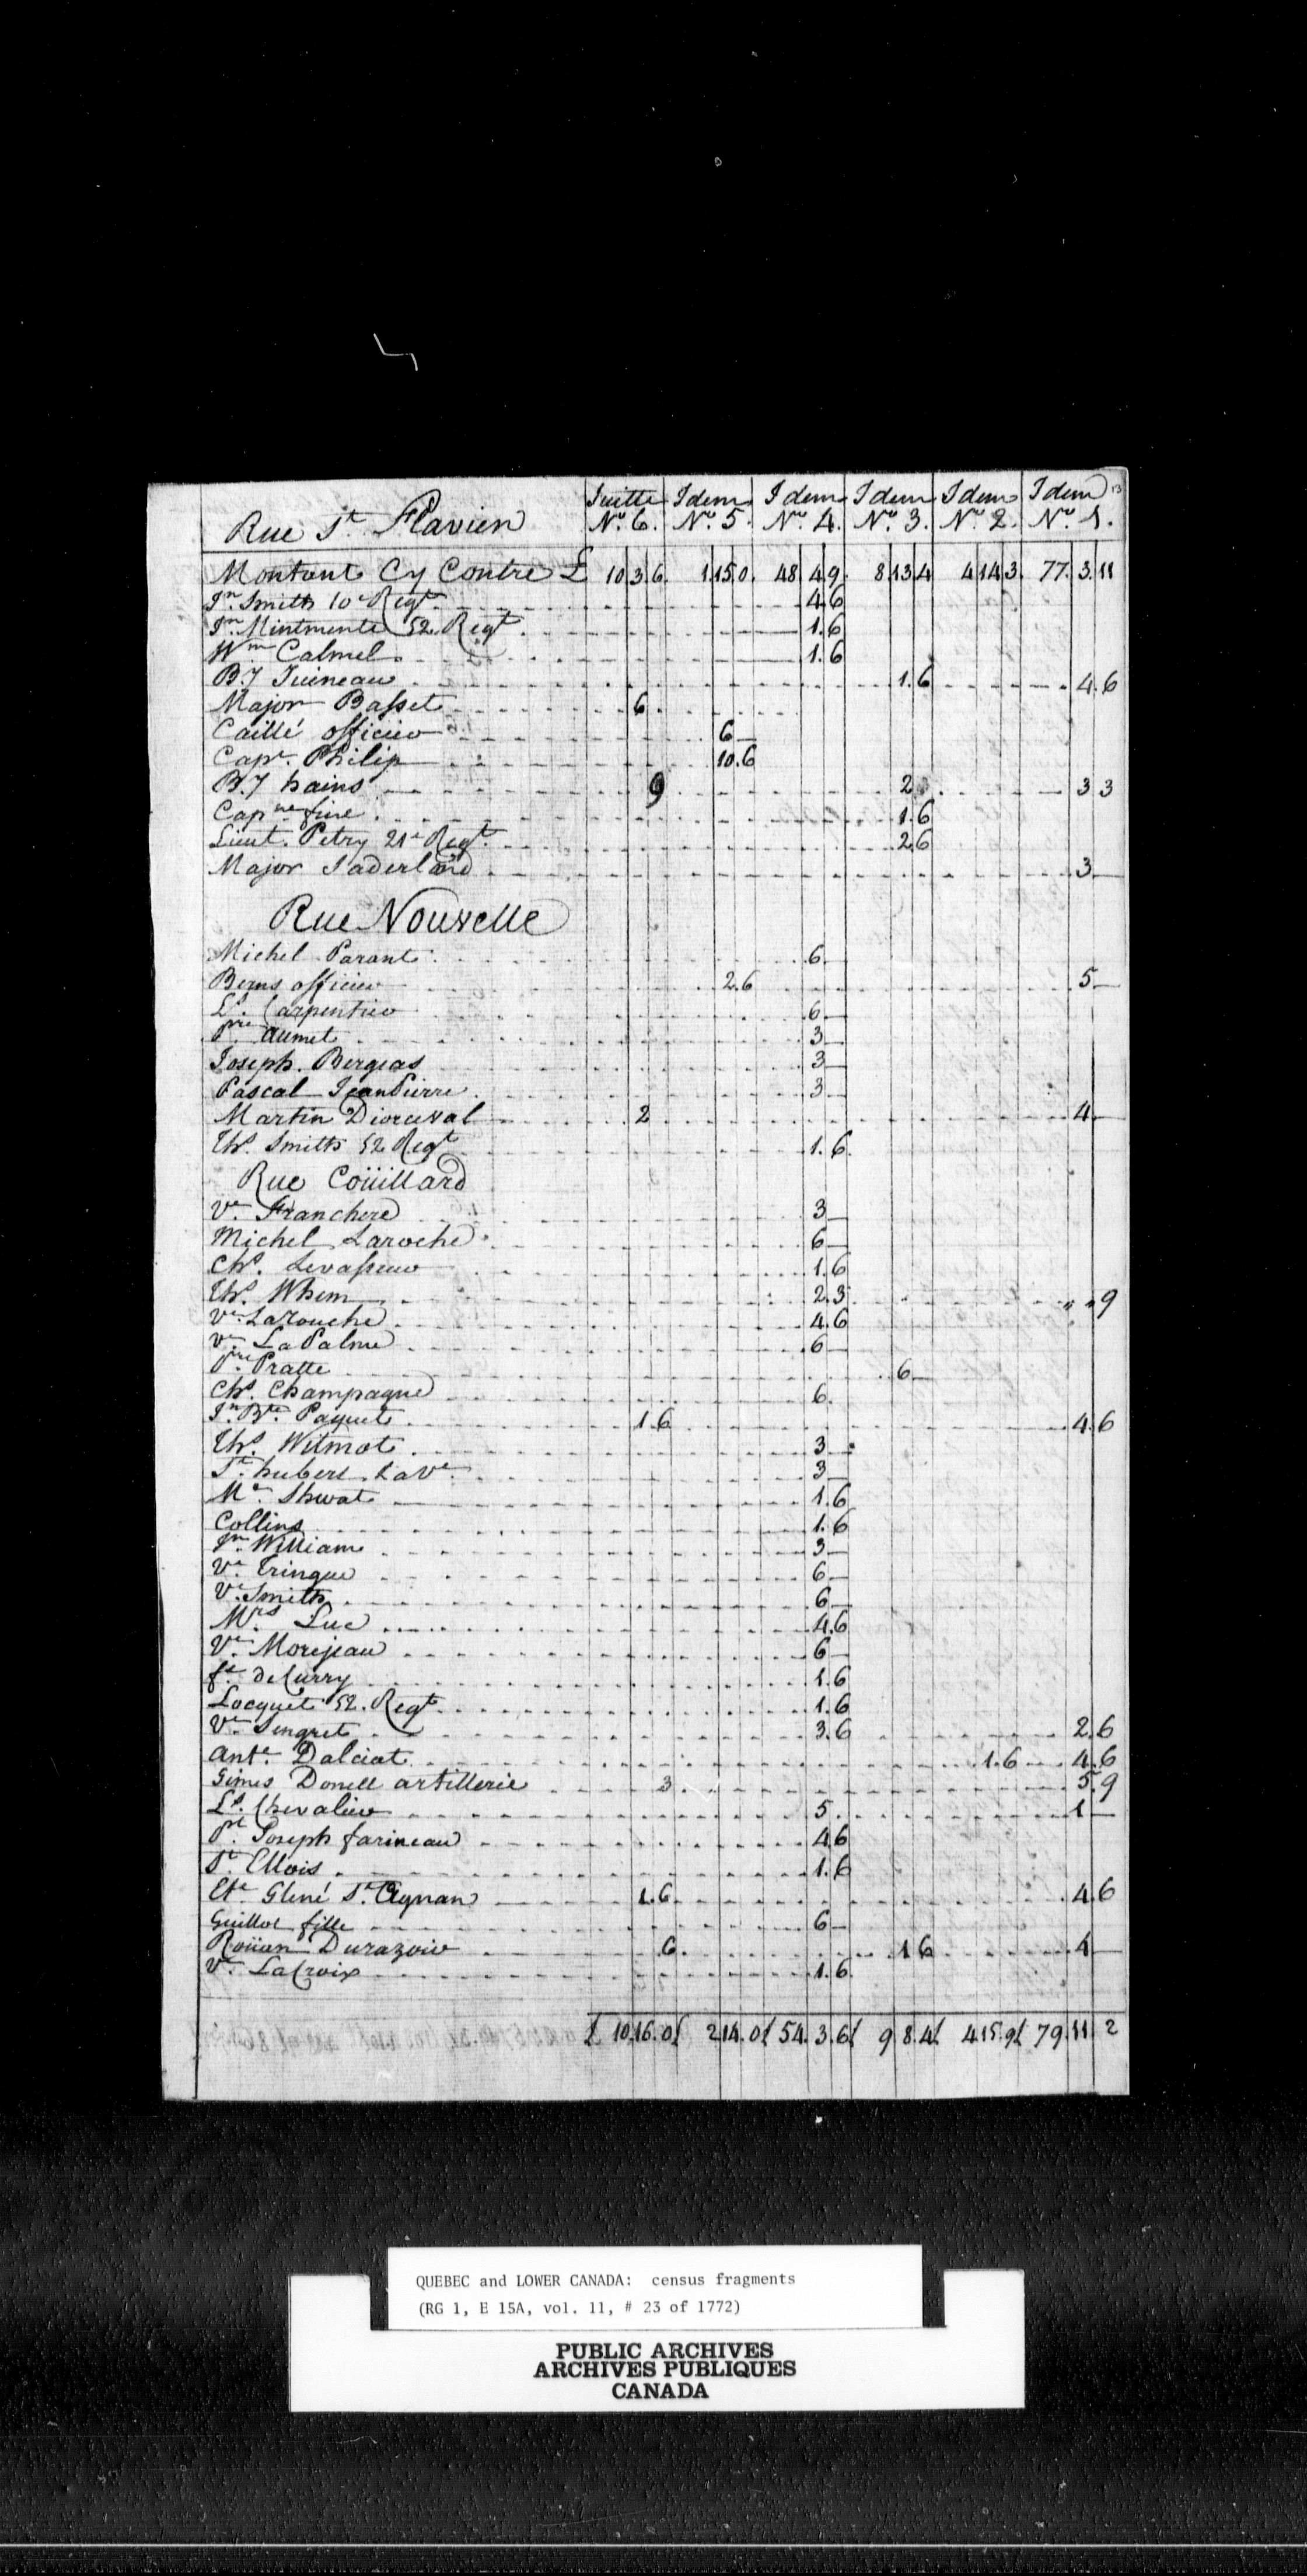 Suitte Idem Idem Idem Idem Idem 13
Rue St. Flavien No. 6. No. 5. No. 4. No. 3. No. 2. No. 1.
Montant Cy Contre £ 10 3 6. 1.15.0. 48 4 9. 8 13 4 4 14 3. 77. 3. 11
Jn. Smitts 10e Regt. 4 6
Jn. Mintmente 52. Regt. 1. 6
Wm Calmel. 1. 6
B. J Juineau 1. 6 4. 6
Major Basset 6
Caillé officier 6
Capt. Philip 10. 6
B. J hains 9 2 3 3
Capne fire 1. 6
Lieut. Petry 21e Regt. 2 6
Major Saderland 3
Rue Nouvelle
Michel Parant 6
Berns officier 2. 6 5
Ls. Carpentier 6
Pre Aumet 3
Joseph. Bergeas 3
Pascal JeanPierre 3
Martin Diorceval 2 4
Ths. Smitts 52 Regt 1. 6
Rue Coüillard
Ve. Franchere 3
Michel Laroche 6
Chs. Levasseur 1. 6
Ths. Whem 2. 3 " " 9
Ve. LaRouche 4. 6
Ve. La Palme 6
Pre Pratte 6
Chs. Champagne 6
Jn. Bte. Paquet 1. 6 4. 6
Ths. Witmot 3
St. hubert La Ve. 3
Mr. Shwat 1. 6
Collins 1. 6
Jn. William 3
Ve. Tringue 6
Ve. Smitts 6
Mrs. Luc 4. 6
Ve. Morejeau 6
fe. DeCurry 1. 6
Locquet 52. Regt. 1. 6
Ve. Sengret 3. 6 2. 6
Ante. Dalciat 1. 6 4. 6
Gimes Donell artillerie 3 5. 9
Ls. Chevalier 5 1
Pt. Joseph farineau 4 6
St. Ellois 1. 6
Cte Glené St. Aignan 1. 6 4. 6
Guillot fille 6
Roüan Durazoir 6 1 6 4
Ve. LaCroix 1. 6
£ 10.16.0 £ 2 14. 0 £ 54. 3. 6 £ 9 8. 4 £ 4 15. 9 £ 79. 11. 2
QUEBEC and LOWER CANADA: census fragments
(RG 1, E 15A, vol. 11, # 23 of 1772)
PUBLIC ARCHIVES
ARCHIVES PUBLIQUES
CANADA